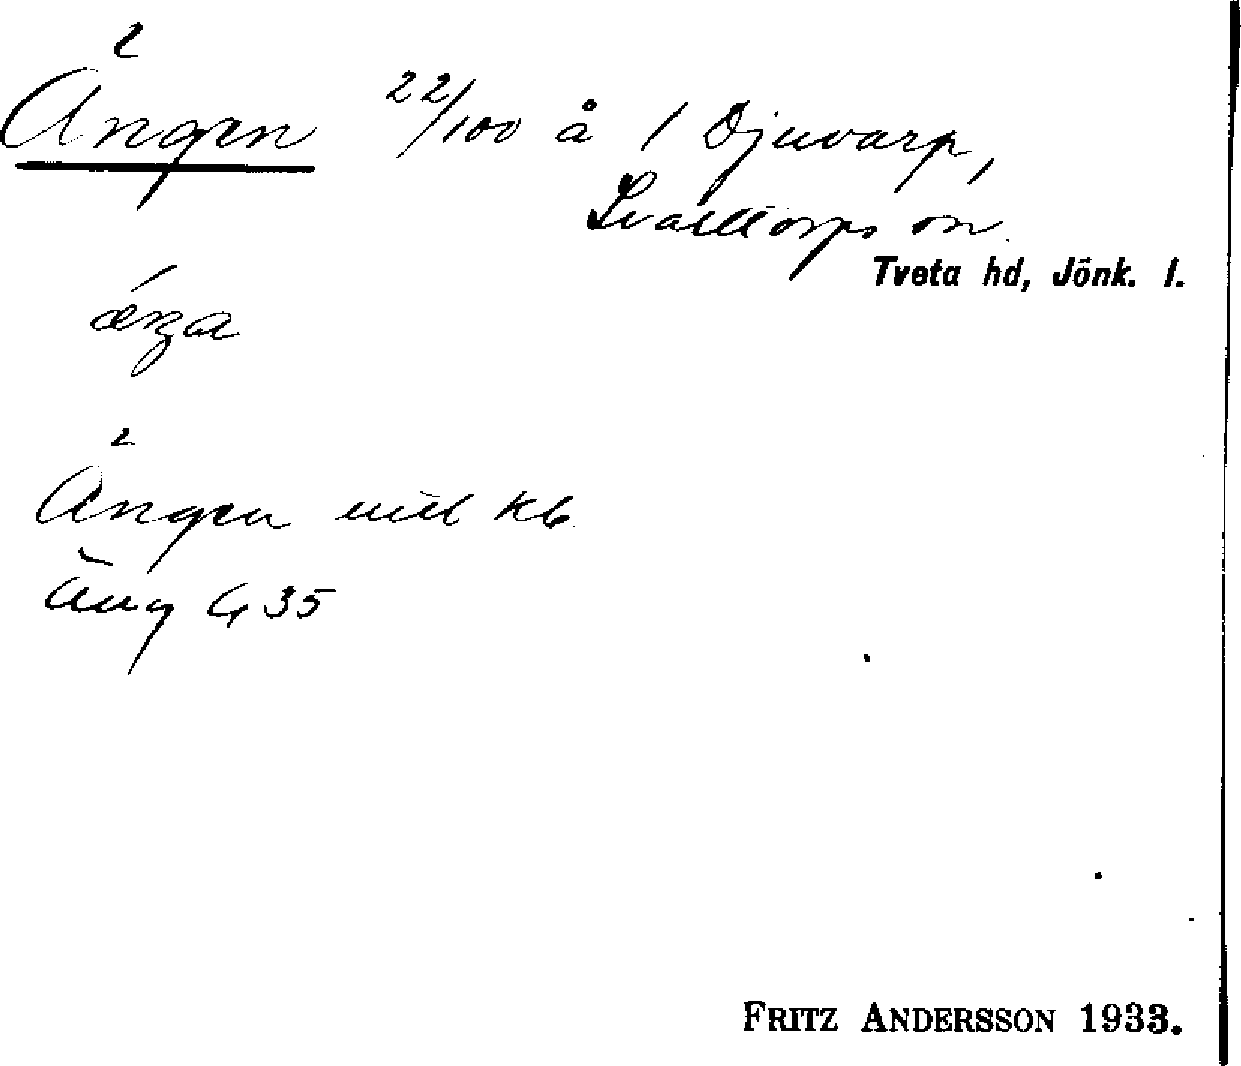 Ängen 22/100 å 1 Djuvarp,
Svarttorps sn.
Tveta hd, Jönk. l.
ǽŋa
Ängen uttl kb
Äng G 35
FRITZ ANDERSSON 1933.